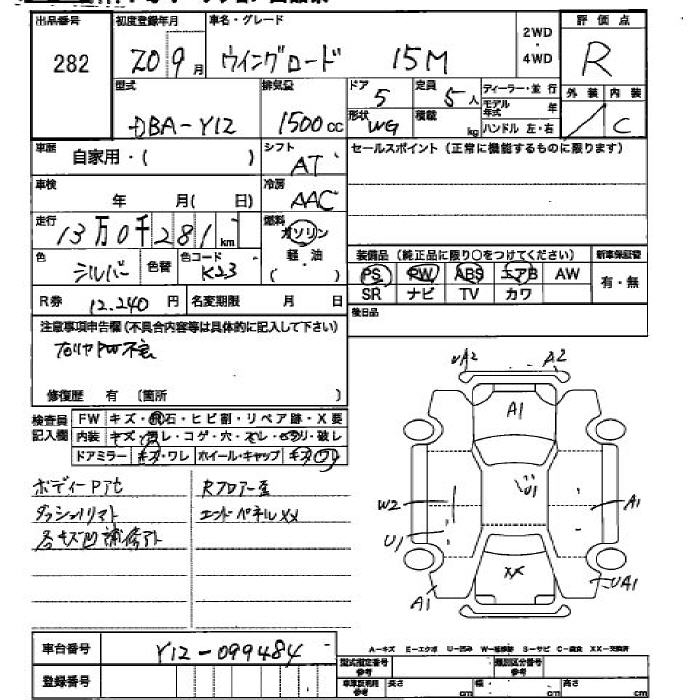 出品番号 初度登録年月 車名・グレード 2WD ・ 4WD 評価点
282 20 9月 ウイングロード 15M R
型式 排気量 ドア 定員 ディーラー・並行 外装 内装
DBA-Y12 1500cc 5 5人 モデル年式 年 C
形状 積載 ハンドル 左・右
WG kg
車歴 自家用・( ) シフト AT セールスポイント(正常に機能するものに限ります)
車検 年 月( 日) 冷房 AAC
走行 13万0千281km 燃料 ガソリン
色 シルバー 色替 色コード K23 軽・油 ( )
装備品(純正品に限り○をつけてください) 新車保証書
PS PW ABS エアB AW 有・無
SR ナビ TV カワ
R券 12.240円 名変期限 月 日 後日品
注意事項申告欄(不具合内容等は具体的に記入して下さい)
右リヤPW不良
修復歴 有 (箇所 )
検査員記入欄 FW キズ・飛石・ヒビ割・リペア跡・X要
内装 キズ・汚レ・コゲ・穴・スレ・破レ
ドアミラー キズ・ワレ ホイール・キャップ キズ・ワレ
UA2 A2
A1
ボディーPアセ Rフロアー歪
ダッシュリマト エンドパネルXX
各キズ凹補修アト
W2 U1 A1
U1
XX
A1 UA1
車台番号 Y12-099484
A-キズ E-エクボ U-凹み W-補修跡 S-サビ C-腐食 XX-交換済
登録番号 型式指定番号 参考 類別区分番号 参考
車庫証明用 参考 長さ cm 幅 cm 高さ cm